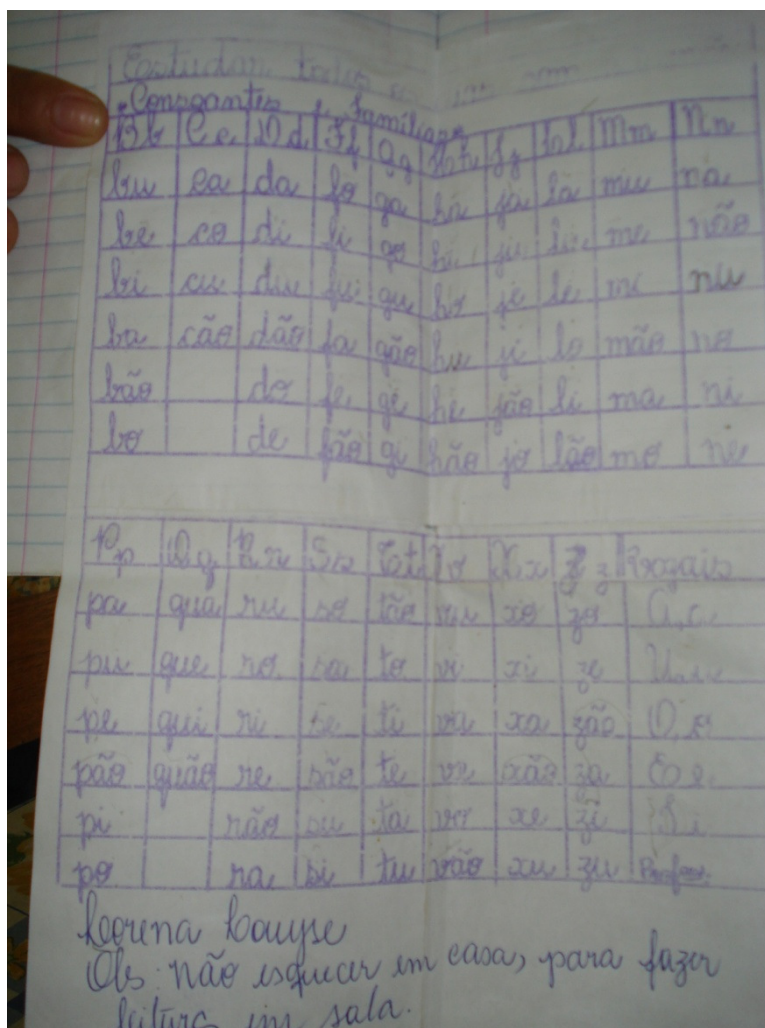 Estudar todos
Consoantes familiares
Bb Cc Dd Ff Gg Hh Jj Ll Mm Nn
bu ca da fo ga ha ja la mu na
be co di fi go hu ju lu me não
bi cu du fu gu ho je le mi nu
ba cão dão fa gão hu ji lo mão no
bão do fe ge hi jão li ma ni
bo de fão gi hão jo lão mo ne
Pp Qq Rr Ss Tt Vv Xx Zz Vogais
pa qua ru so tão vu xo zo A, a
pu que ro sa to vi xi ze U, u
pe qui ri se ti va xa zão O, o
pão quão re são te ve xão za E e
pi rão su ta vo xe zi I i
po ra si tu vão xu zu
Lorena Louyse
Obs: não esquecer em casa, para fazer
leitura em sala.